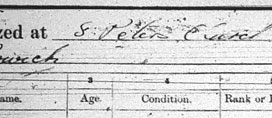 zed at S Peters Church
3 4
ame. Age. Condition. Rank or